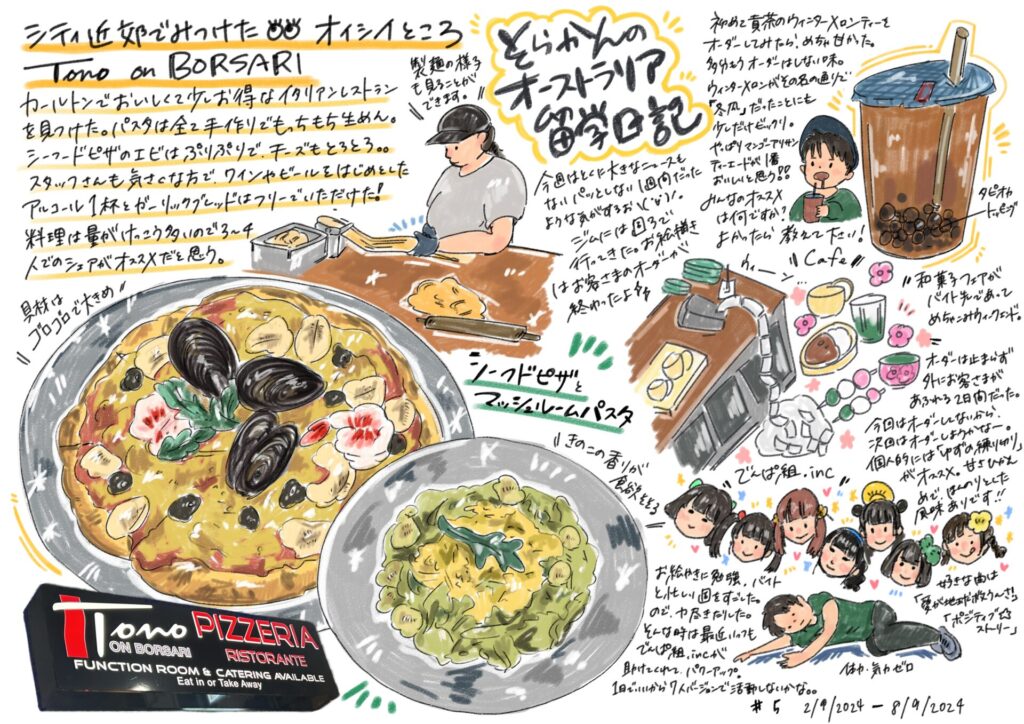 シティ近郊でみつけた オイシイところ
Tono on BORSARI
カールトンでおいしくて少しお得なイタリアンレストラン
を見つけた。パスタは全て手作りでもっちもち生めん。
シーフードピザのエビはぷりぷりで、チーズもとろとろ。。
スタッフさんも気さくな方で、ワインやビールをはじめとした
アルコール1杯とガーリックブレッドはフリーでいただけた!
料理は量がけっこう多いので3〜4
人でのシェアがオススメだと思う。
製麺の様子
も見ることが
できます。
そらかんの
オーストラリア
留学日記
今週はとくに大きなニュースも
ないパッとしない1週間だった
ような気がするお
ジムには3回ろで
行ってきた。お絵描き
はお客さまのオーダーが
終わったよ
初めて貢茶のウィンターメロンティーを
オーダーしてみたら、めちゃ甘かった。
多分もうオーダーはしない味。
ウィンターメロンがその名の通りで
「冬瓜」だったことにも
少しだけビックリ。
やっぱりマンゴーアリサン
ティーエードが1番
おいしいと思う!!
みんなのオススメ
は何ですか?
よかったら教えて下さい!
タピオカ
トッピング
具材は
ゴロゴロで大きめ
シーフードピザと
マッシュルームパスタ
きのこの香りが
食欲をそそる
Cafe
ウィーン
和菓子フェアが
バイト先であって
めちゃこみウィークエンド。
オーダーは止まらず
外にお客さまが
あふれる2日間だった。
今回はオーダーしてないから、
次回はオーダーしようかなー。
個人的には「ゆずの練り切り」
がオススメ。甘さひかえ
めで、ほんのりとした
風味ありです!!
でんぱ組.inc
お絵かきに勉強、バイト
と忙しい週をすごした
ので、力尽きたりした。
そんな時は最近いつも
でんぱ組.incが
助けてくれて、パワーアップ。
1日でいいから7人バージョンで活動しないかな。。
好きな曲は
「愛が地球救うんさ」
「ポジティブ☆
ストーリー」
体力・気力ゼロ
Tono
ON BORSARI
PIZZERIA
RISTORANTE
FUNCTION ROOM & CATERING AVAILABLE
Eat in or Take Away
#5 2/9/2024 — 8/9/2024